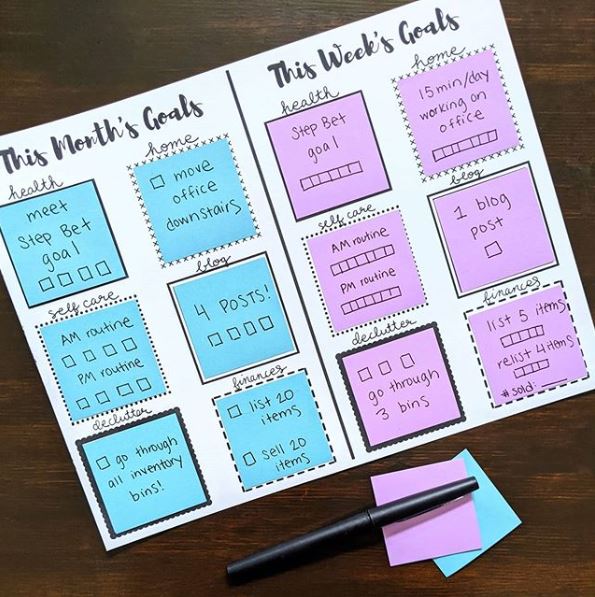 This Month's Goals
health
meet
Step Bet
goal
home
move
office
downstairs
self care
AM routine
PM routine
blog
4 POSTS!
declutter
go through
all inventory
bins!
finances
list 20
items
sell 20
items
This Week's Goals
health
Step Bet
goal
home
15 min/day
working on
office
self care
AM routine
PM routine
blog
1 blog
post
declutter
go through
3 bins
finances
list 5 items
relist 4 items
# sold: